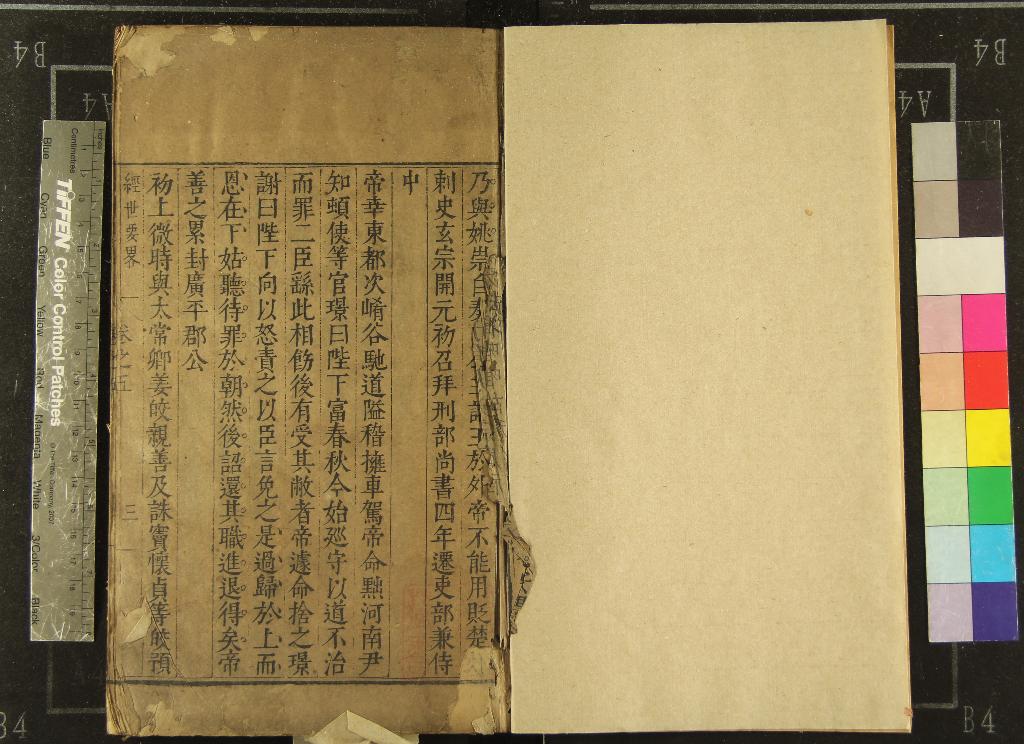 乃與姚崇白奏
主於外帝不能用貶楚
刺史玄宗開元初召拜刑部尚書四年遷吏部兼侍
中
帝幸東都次崤谷馳道隘稽擁車駕帝命黜河南尹
知頓使等官璟曰陛下富春秋今始廵守以道不治
而罪二臣繇此相飭後有受其敝者帝遽命捨之璟
謝曰陛下向以怒責之以臣言免之是過歸於上而
恩在下姑聽待罪於朝然後詔還其職進退得矣帝
善之累封廣平郡公
初上微時與太常卿姜皎親善及誅竇懷貞等皎預
經世要畧
卷之五
三
B4
A4
TIFFEN Color Control Patches
Centimetres
Inches
Blue
Cyan
Green
Yellow
Red
Magenta
White
3/Color
Black
A4
B4
B4
B4